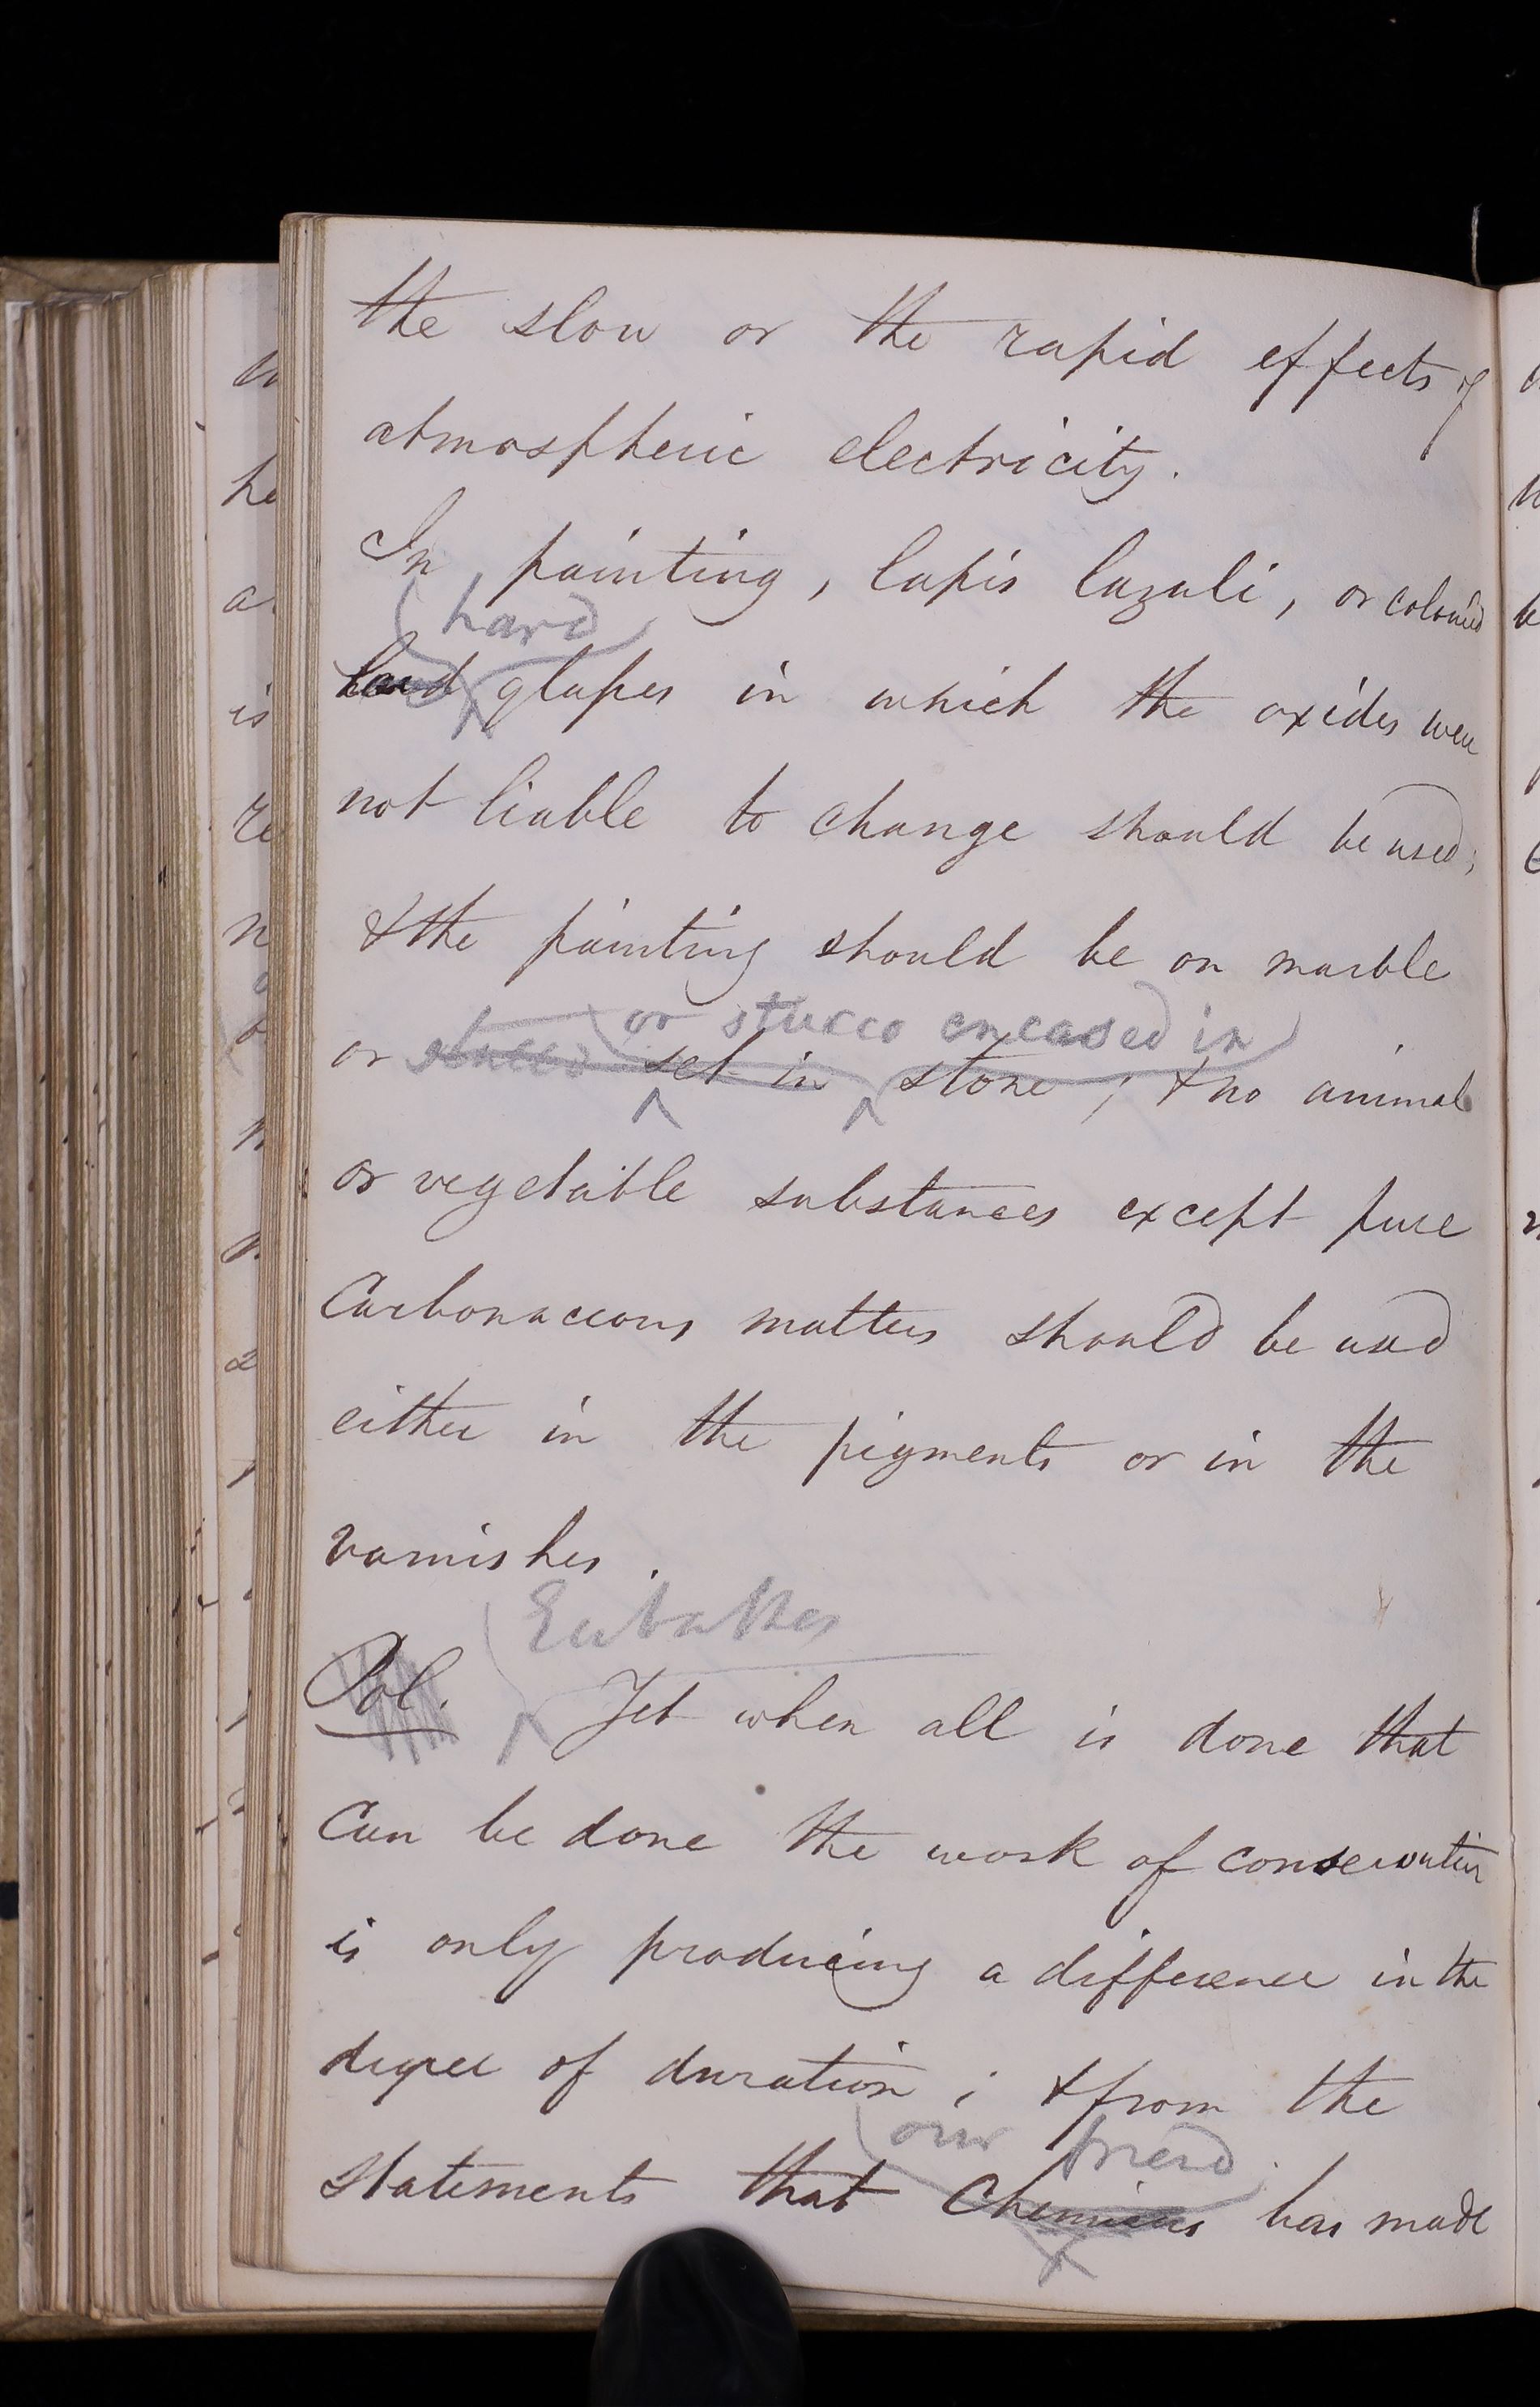 the slow or the rapid effects of
atmospheric electricity.
In painting, lapis lazuli, or coloured
hard
hard glasses in which the oxides were
not liable to change should be used;
& the painting should be on marble
or stucco encased in
or stucco set in stone; & no animal
or vegetable substances except pure
Carbonaceous matters should be used
either in the pigments or in the
varnishes.
Eubathes
Pol. Yet when all is done that
Can be done the work of conservation
is only producing a difference in the
degree of duration; & from the
our friend
statements that Chemicus has made